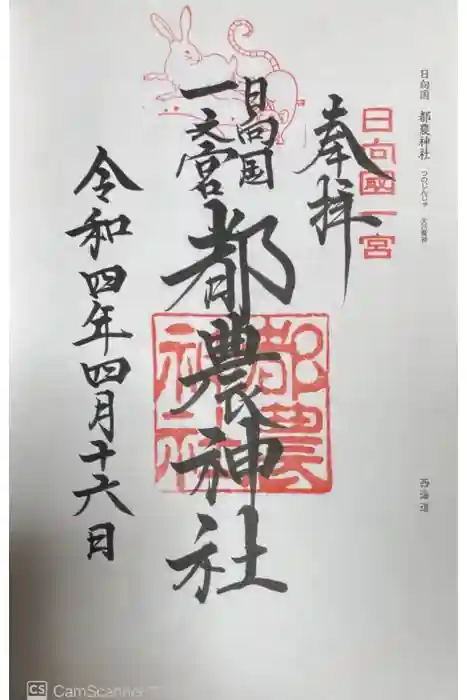 日向国 都農神社 つのじんじゃ 大己貴神
西海道
日向國一宮
奉拝
日向国
一之宮
都農神社
都農
神社
令和四年四月十六日
CS CamScanner